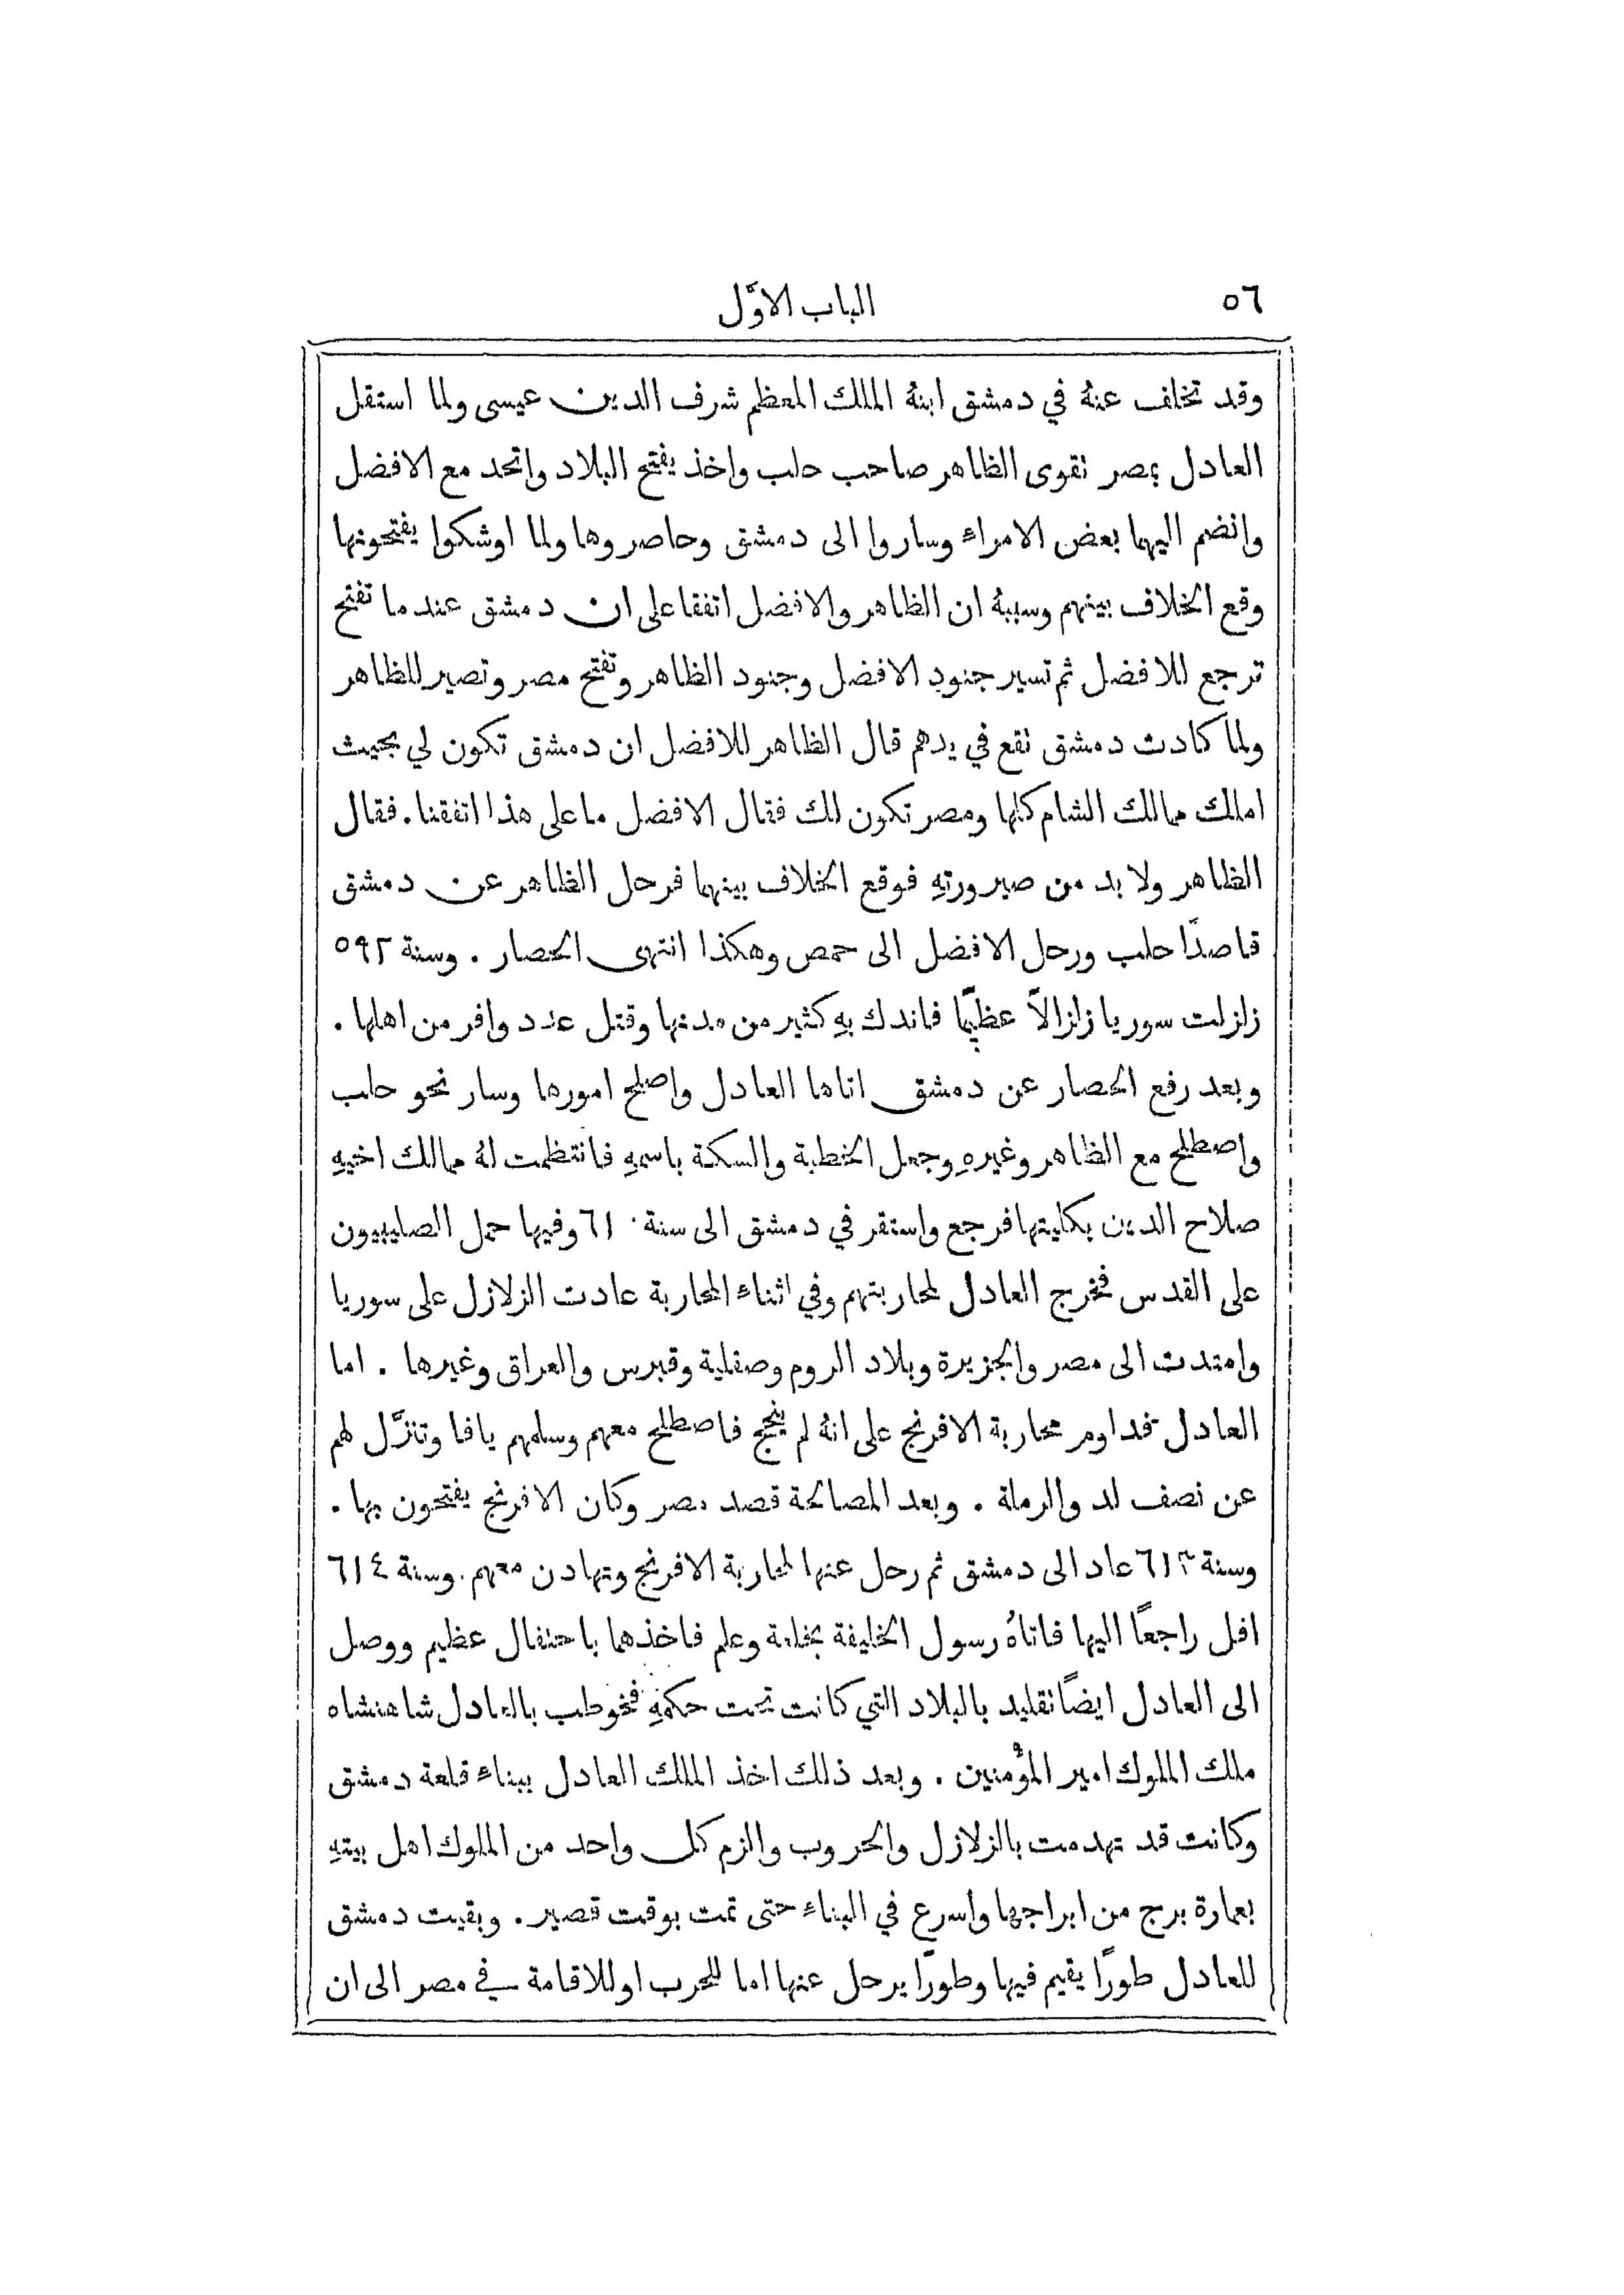 ٥٦
الباب الاوَّل
وقد تخلف عنهُ في دمشق ابنهُ الملك المعظم شرف الدين عيسى ولما استقل
العادل بمصر تقوى الظاهر صاحب حلب واخذ يفتح البلاد واتحد مع الافضل
وانضم اليهما بعض الامراء وساروا الى دمشق وحاصروها ولما اوشكوا يفتحونها
وقع الخلاف بينهم وسببهُ ان الظاهر والافضل اتفقا على ان دمشق عند ما تفتح
ترجع للافضل ثم تسير جنود الافضل وجنود الظاهر وتفتح مصر وتصير للظاهر
ولما كادت دمشق تقع في يدهم قال الظاهر للافضل ان دمشق تكون لي بحيث
املك ممالك الشام كلها ومصر تكون لك فقال الافضل ما على هذا اتفقنا . فقال
الظاهر ولا بد من صيرورتهِ فوقع الخلاف بينهما فرحل الظاهر عن دمشق
قاصدًا حلب ورحل الافضل الى حمص وهكذا انتهى الحصار . وسنة ٥٩٢
زلزلت سوريا زلزالاً عظيمًا فاندك بهِ كثير من مدنها وقتل عدد وافر من اهلها .
وبعد رفع الحصار عن دمشق اتاها العادل واصلح امورها وسار نحو حلب
واصطلح مع الظاهر وغيرهِ وجعل الخطبة والسكة باسمهِ فانتظمت لهُ ممالك اخيهِ
صلاح الدين بكليتها فرجع واستقر في دمشق الى سنة ٦١٠ وفيها حمل الصليبيون
على القدس فخرج العادل لمحاربتهم وفي اثناء المحاربة عادت الزلازل على سوريا
وامتدت الى مصر والجزيرة وبلاد الروم وصقلية وقبرس والعراق وغيرها . اما
العادل فداوم محاربة الافرنج على انهُ لم ينجح فاصطلح معهم وسلمهم يافا وتنزَّل لهم
عن نصف لد والرملة . وبعد المصالحة قصد مصر وكان الافرنج يفتحون بها .
وسنة ٦١٣ عاد الى دمشق ثم رحل عنها لمحاربة الافرنج وتهادن معهم . وسنة ٦١٤
افل راجعًا اليها فاتاهُ رسول الخليفة بخلعة وعلم فاخذهما باحتفال عظيم ووصل
الى العادل ايضًا تقليد بالبلاد التي كانت تحت حكمهِ فخوطب بالعادل شاهنشاه
ملك الملوك امير المؤْمنين . وبعد ذلك اخذ الملك العادل ببناء قلعة دمشق
وكانت قد تهدمت بالزلازل والحروب والزم كل واحد من الملوك اهل بيتهِ
بعمارة برج من ابراجها واسرع في البناء حتى تمت بوقت قصير . وبقيت دمشق
للعادل طورًا يقيم فيها وطورًا يرحل عنها اما للحرب او للاقامة في مصر الى ان